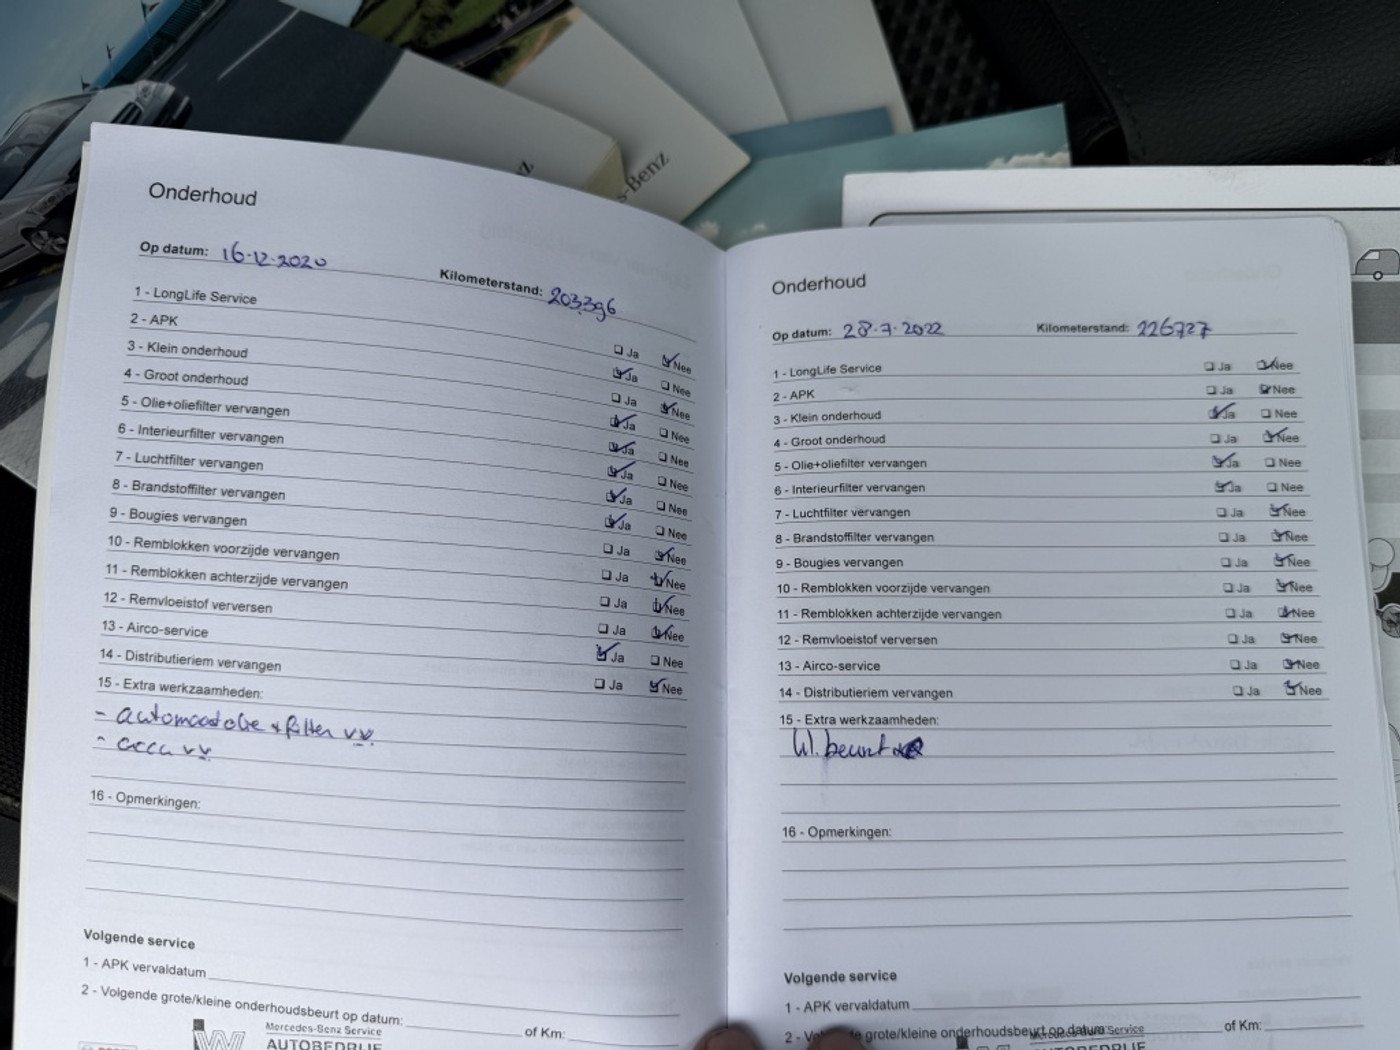 s-Benz
nz
Onderhoud
Op datum: 16-12-2020 Kilometerstand: 203396
1 - LongLife Service ❑ Ja ☑ Nee
2 - APK ☑ Ja ❑ Nee
3 - Klein onderhoud ❑ Ja ☑ Nee
4 - Groot onderhoud ☑ Ja ❑ Nee
5 - Olie+oliefilter vervangen ☑ Ja ❑ Nee
6 - Interieurfilter vervangen ☑ Ja ❑ Nee
7 - Luchtfilter vervangen ☑ Ja ❑ Nee
8 - Brandstoffilter vervangen ☑ Ja ❑ Nee
9 - Bougies vervangen ❑ Ja ☑ Nee
10 - Remblokken voorzijde vervangen ❑ Ja ☑ Nee
11 - Remblokken achterzijde vervangen ❑ Ja ☑ Nee
12 - Remvloeistof verversen ❑ Ja ☑ Nee
13 - Airco-service ☑ Ja ❑ Nee
14 - Distributieriem vervangen ❑ Ja ☑ Nee
15 - Extra werkzaamheden:
- automaatolie + filter vv.
- accu vv.
16 - Opmerkingen:
Volgende service
1 - APK vervaldatum
2 - Volgende grote/kleine onderhoudsbeurt op datum: of Km:
Mercedes-Benz Service
AUTOBEDRIJF
Onderhoud
Op datum: 28-7-2022 Kilometerstand: 226727
1 - LongLife Service ❑ Ja ☑ Nee
2 - APK ❑ Ja ☑ Nee
3 - Klein onderhoud ☑ Ja ❑ Nee
4 - Groot onderhoud ❑ Ja ☑ Nee
5 - Olie+oliefilter vervangen ☑ Ja ❑ Nee
6 - Interieurfilter vervangen ☑ Ja ❑ Nee
7 - Luchtfilter vervangen ❑ Ja ☑ Nee
8 - Brandstoffilter vervangen ❑ Ja ☑ Nee
9 - Bougies vervangen ❑ Ja ☑ Nee
10 - Remblokken voorzijde vervangen ❑ Ja ☑ Nee
11 - Remblokken achterzijde vervangen ❑ Ja ☑ Nee
12 - Remvloeistof verversen ❑ Ja ☑ Nee
13 - Airco-service ❑ Ja ☑ Nee
14 - Distributieriem vervangen ❑ Ja ☑ Nee
15 - Extra werkzaamheden:
W.beurt
16 - Opmerkingen:
Volgende service
1 - APK vervaldatum
2 - grote/kleine onderhoudsbeurt op datum of Km:
Mercedes-Benz Service
AUTOBEDRIJF